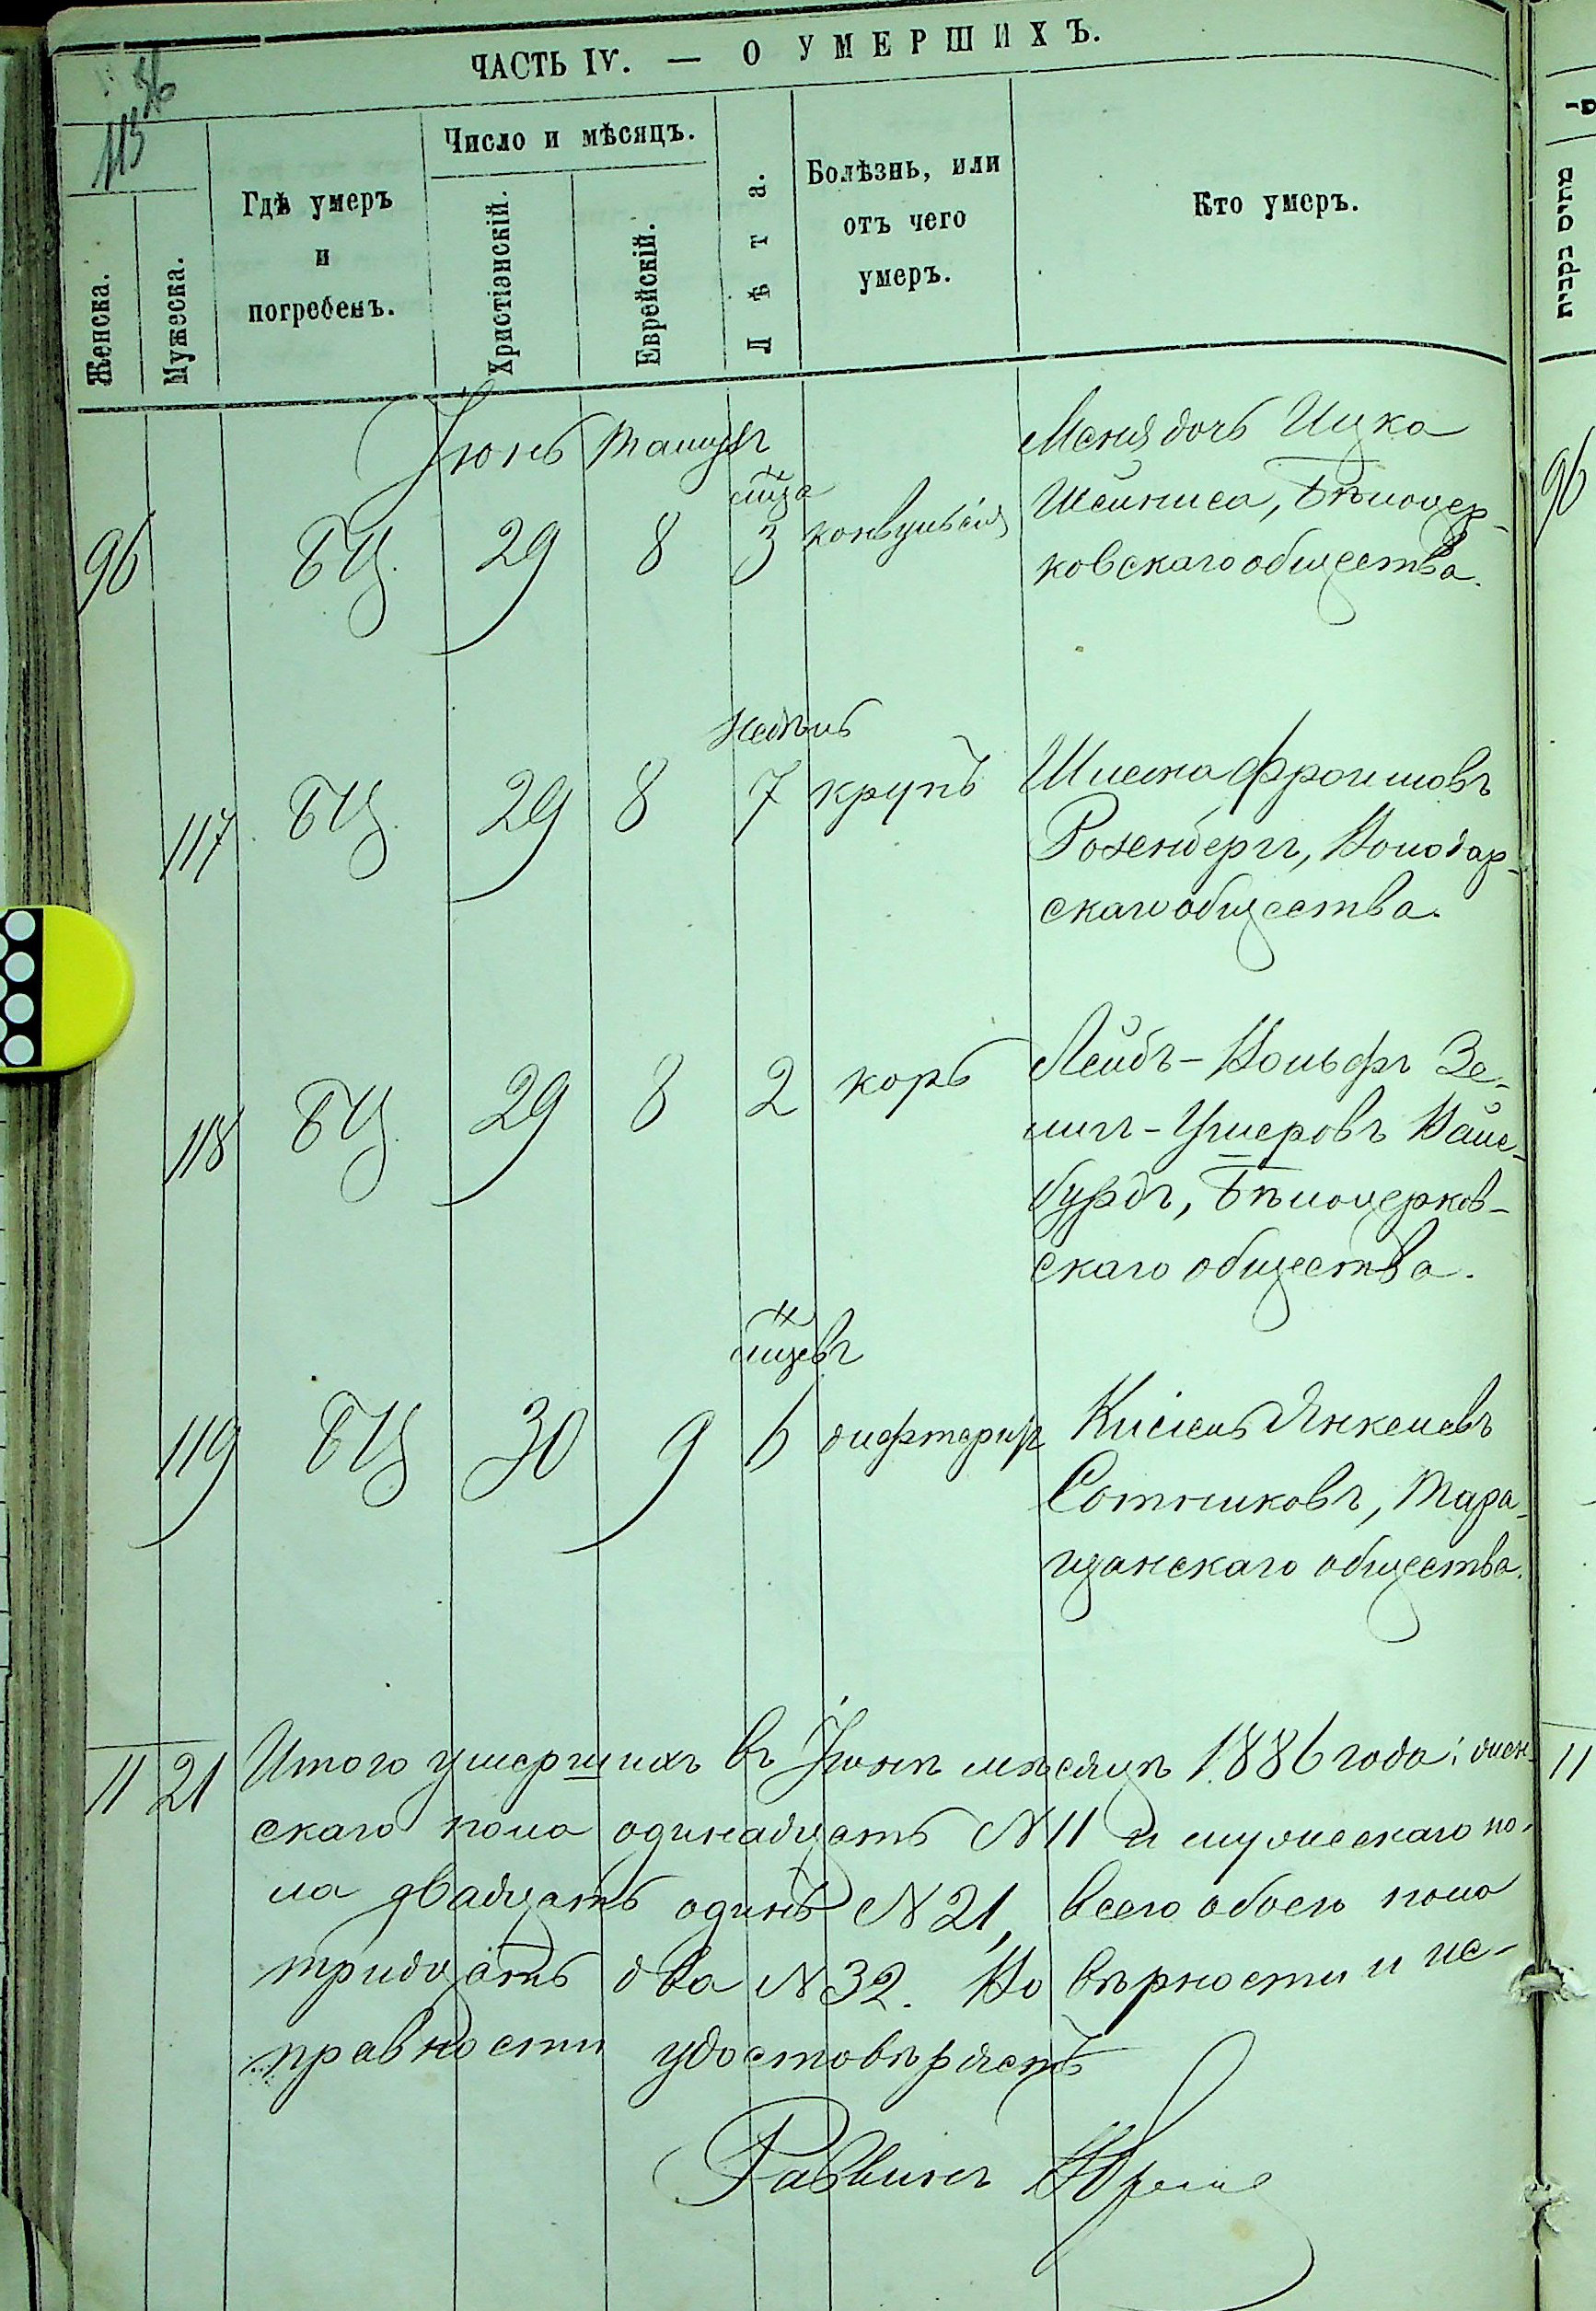 ЧАСТЬ IV. — О УМЕРШИХЪ.
113
Женска.
Мужеска.
Гдѣ умеръ
и
погребенъ.
Число и мѣсяцъ.
Христіанскій.
Еврейскій.
Лѣта.
Болѣзнь, или
отъ чего
умеръ.
Кто умеръ.
Іюнь Тамузъ
96 БЦ. 29 8 мца 3 конвульсія
Меня дочь Ицка
Шейниса, Бѣлоцер-
ковскаго общества.
117 БЦ. 29 8 недѣль 7 крупъ
Шлема Фроимовъ
Розенбергъ, Володар-
скаго общества.
118 БЦ. 29 8 2 корь
Лейбъ-Вольфъ Зе-
лигъ-Ушеровъ Вайс-
бурдъ, Бѣлоцерков-
скаго общества.
119 БЦ 30 9 мцевъ 6 дифтеритъ
Кисіель Янкелевъ
Сотниковъ, Тара-
щанскаго общества.
11 21 Итого умершихъ въ Іюнѣ мѣсяцѣ 1886 года: жен-
скаго пола одинадцать N 11 и мужескаго по-
ла двадцать одинъ N 21, всего обоего пола
тридцать два N 32. Во вѣрности и ис-
правности удостовѣряетъ
Раввинъ
מתים בקרית
96
11